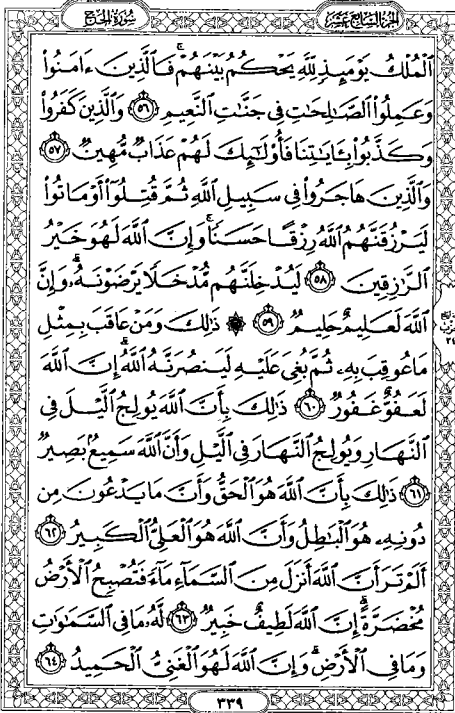 سُورَةُ الحَجِّ
الجُزْءُ السَّابِعُ عَشَرَ
ٱلْمُلْكُ يَوْمَئِذٍ لِّلَّهِ يَحْكُمُ بَيْنَهُمْ ۚ فَٱلَّذِينَ ءَامَنُوا۟
وَعَمِلُوا۟ ٱلصَّـٰلِحَـٰتِ فِى جَنَّـٰتِ ٱلنَّعِيمِ ٥٦ وَٱلَّذِينَ كَفَرُوا۟
وَكَذَّبُوا۟ بِـَٔايَـٰتِنَا فَأُو۟لَـٰٓئِكَ لَهُمْ عَذَابٌ مُّهِينٌ ٥٧
وَٱلَّذِينَ هَاجَرُوا۟ فِى سَبِيلِ ٱللَّهِ ثُمَّ قُتِلُوٓا۟ أَوْ مَاتُوا۟
لَيَرْزُقَنَّهُمُ ٱللَّهُ رِزْقًا حَسَنًا ۚ وَإِنَّ ٱللَّهَ لَهُوَ خَيْرُ
ٱلرَّٰزِقِينَ ٥٨ لَيُدْخِلَنَّهُم مُّدْخَلًا يَرْضَوْنَهُۥ ۗ وَإِنَّ
ٱللَّهَ لَعَلِيمٌ حَلِيمٌ ٥٩ ۞ ذَٰلِكَ وَمَنْ عَاقَبَ بِمِثْلِ
مَا عُوقِبَ بِهِۦ ثُمَّ بُغِىَ عَلَيْهِ لَيَنصُرَنَّهُ ٱللَّهُ ۗ إِنَّ ٱللَّهَ
لَعَفُوٌّ غَفُورٌ ٦٠ ذَٰلِكَ بِأَنَّ ٱللَّهَ يُولِجُ ٱلَّيْلَ فِى
ٱلنَّهَارِ وَيُولِجُ ٱلنَّهَارَ فِى ٱلَّيْلِ وَأَنَّ ٱللَّهَ سَمِيعٌۢ بَصِيرٌ
٦١ ذَٰلِكَ بِأَنَّ ٱللَّهَ هُوَ ٱلْحَقُّ وَأَنَّ مَا يَدْعُونَ مِن
دُونِهِۦ هُوَ ٱلْبَـٰطِلُ وَأَنَّ ٱللَّهَ هُوَ ٱلْعَلِىُّ ٱلْكَبِيرُ ٦٢
أَلَمْ تَرَ أَنَّ ٱللَّهَ أَنزَلَ مِنَ ٱلسَّمَآءِ مَآءً فَتُصْبِحُ ٱلْأَرْضُ
مُخْضَرَّةً ۗ إِنَّ ٱللَّهَ لَطِيفٌ خَبِيرٌ ٦٣ لَّهُۥ مَا فِى ٱلسَّمَـٰوَٰتِ
وَمَا فِى ٱلْأَرْضِ ۗ وَإِنَّ ٱللَّهَ لَهُوَ ٱلْغَنِىُّ ٱلْحَمِيدُ ٦٤
٣٣٩